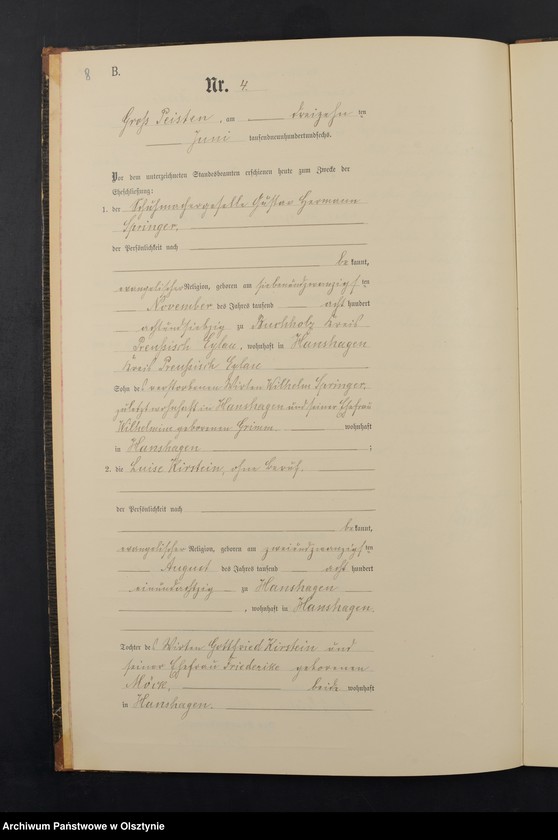 8 B.
Nr. 4.
Groß Peisten, am dreizehn ten
Juni tausendneunhundertundsechs.
Vor dem unterzeichneten Standesbeamten erschienen heute zum Zwecke der
Eheschließung:
1. der Schuhmachergeselle Gustav Hermann
Springer,
der Persönlichkeit nach
be kannt,
evangelischer Religion, geboren am siebenundzwanzigsten
November des Jahres tausend acht hundert
achtundsiebzig zu Buchholz Kreis
Preußisch Eylau, wohnhaft in Hanshagen
Kreis Preußisch Eylau
Sohn des verstorbenen Wirten Wilhelm Springer,
zuletzt wohnhaft in Hanshagen und seiner Ehefrau
Wilhelmine geborenen Grimm wohnhaft
in Hanshagen ;
2. die Luise Kirstein, ohne Beruf.
der Persönlichkeit nach
be kannt,
evangelischer Religion, geboren am zweiundzwanzigsten
August des Jahres tausend acht hundert
einundachtzig zu Hanshagen
, wohnhaft in Hanshagen.
Tochter des Wirten Gottfried Kirstein und
seiner Ehefrau Friederike geborenen
Möck, beide wohnhaft
in Hanshagen.
Archiwum Państwowe w Olsztynie